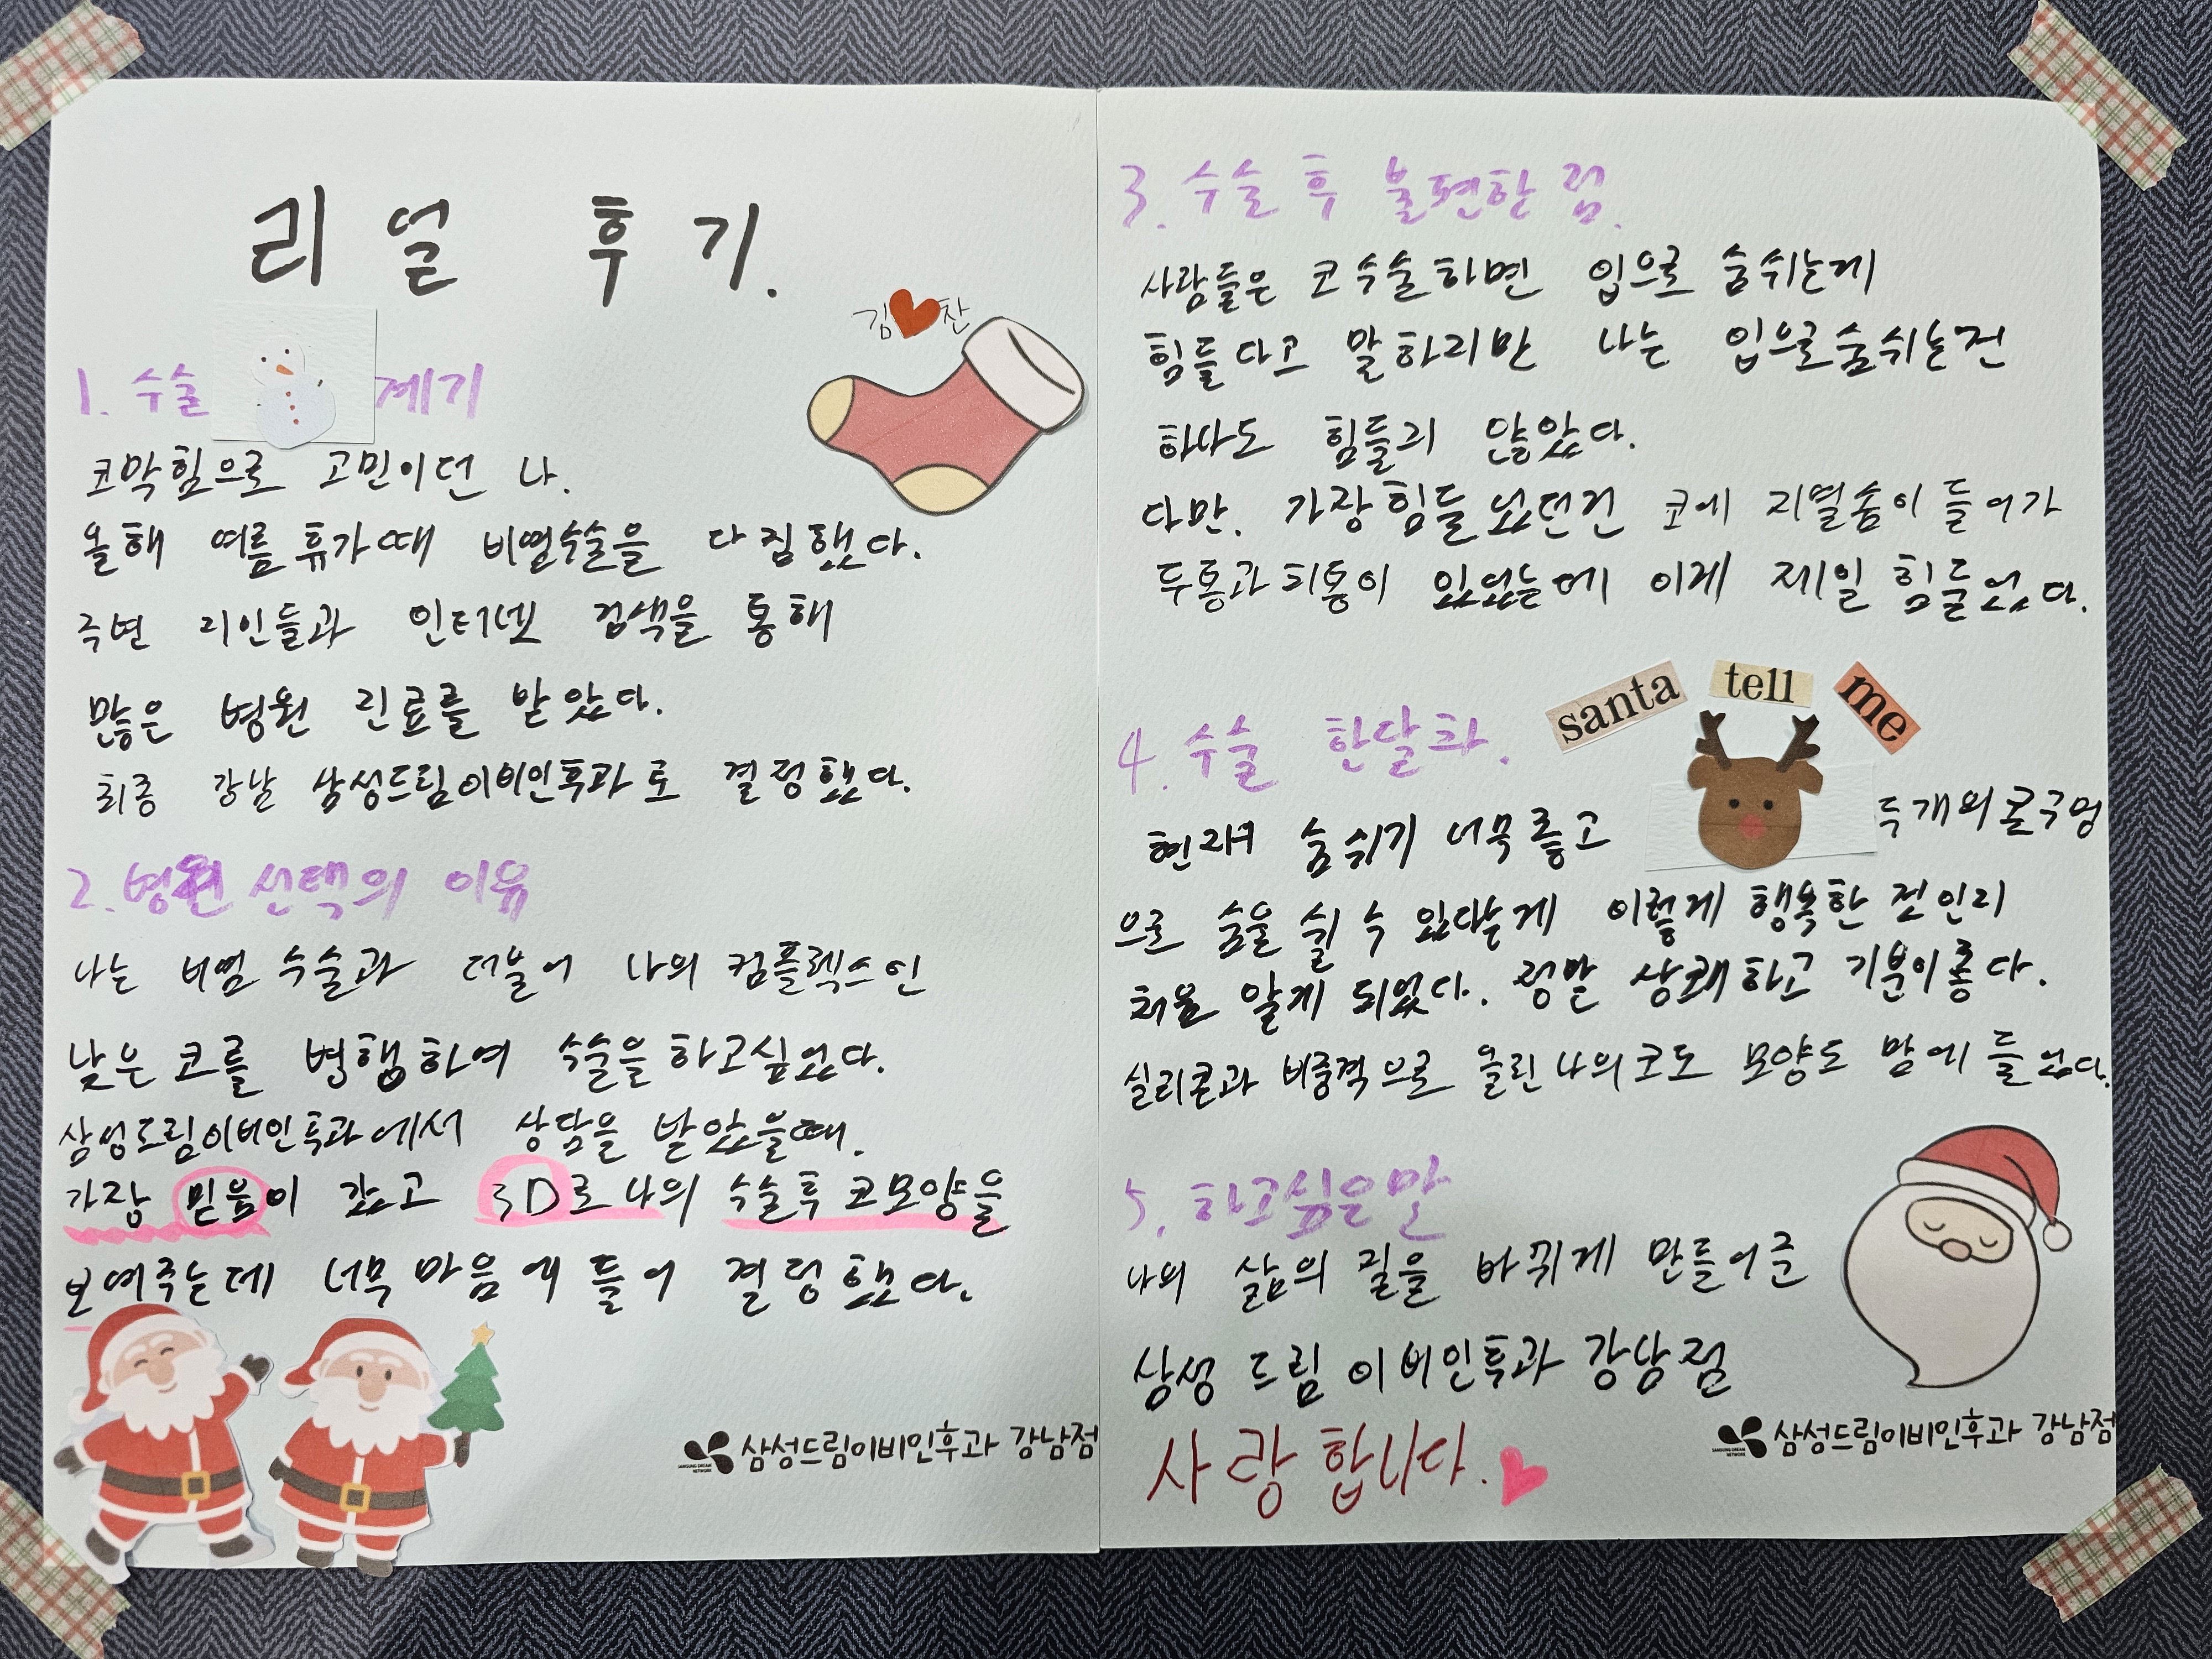 리얼 후기.
김 찬
1. 수술 계기
코막힘으로 고민이던 나.
올해 여름 휴가때 비염수술을 다짐했다.
주변 지인들과 인터넷 검색을 통해
많은 병원 진료를 받았다.
최종 강남 삼성드림이비인후과로 결정했다.
2. 병원 선택의 이유
나는 비염 수술과 더불어 나의 컴플렉스인
낮은 코를 병행하여 수술을 하고싶었다.
삼성드림이비인후과에서 상담을 받았을때.
가장 믿음이 갔고 3D로 나의 수술후 코모양을
보여주는데 너무 마음에 들어 결정했다.
SAMSUNG DREAM NETWORK 삼성드림이비인후과 강남점
3. 수술 후 불편한 점.
사람들은 코수술하면 입으로 숨쉬는게
힘들다고 말하지만 나는 입으로숨쉬는건
하나도 힘들지 않았다.
다만. 가장힘들었던건 코에 지혈솜이 들어가
두통과 치통이 있었는데 이게 제일 힘들었다.
santa tell me
4. 수술 한달차.
현재 숨쉬기 너무좋고 두개의콧구멍
으로 숨을 쉴 수 있다는게 이렇게 행복한 것인지
처음 알게 되었다. 정말 상쾌하고 기분이좋다.
실리콘과 비중격으로 올린 나의코도 모양도 맘에 들었다.
5. 하고싶은말
나의 삶의 질을 바뀌게 만들어준
삼성 드림 이비인후과 강남점
사랑합니다.
SAMSUNG DREAM NETWORK 삼성드림이비인후과 강남점